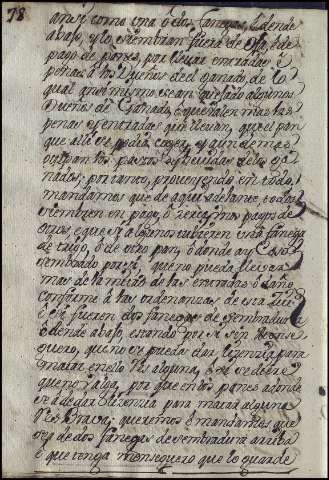 78
ansi como una o dos fanegas, o dende
abaxo, y lo siembran fuera de
pago de panes, por llevar entradas y
penas a los dueños del ganado, de lo
qual ansi mismo se an quejado algunos
dueños de Ganado, que valen mas las
penas y entradas que llevan, que el pan
que alli se podia coger, y aun demas
ocupan los pastos de los ga
nados; por tanto, proveyendo en todo,
mandamos que de aqui adelante todos
siembren en pago, o
otros, y que si algunos tubieren una fanega
de trigo, o de otro pan, o donde
sembrado por si, que no pueda llevar
mas de la mitad de las entradas o daño,
conforme a las ordenanzas de esta
E si fueren dos fanegas de sembradura
o dende abaxo, estando por si sin
guero, que no se pueda dar licencia para
matar en ello Res alguna, o si se diere
que no alga, por que en los panes adonde
se a de dar licencia para matar alguna
Res Brava; queremos e mandamos que
sea de dos fanegas de sembradura arriba
e que tenga menseguero que lo guarde